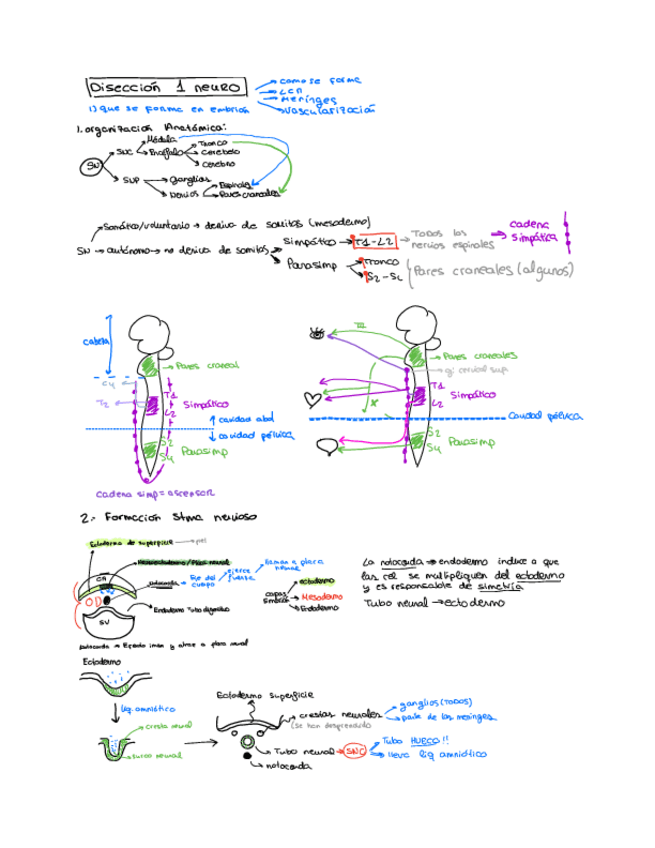 Disección 1 neuro
como se forma
LCR
Meninges
Vascularización
1) que se forma en embrión
1. organización Anatómica:
SN
SNC
Médula
Encéfalo
Tronco
Cerebelo
Cerebro
SNP
Ganglios
Nervios
Espinales
Pares craneales
SN
Somático/voluntario → deriva de somitas (mesodermo)
autónomo → no deriva de somitas
Simpático → T1-L2 → Todos los nervios espinales → cadena simpática
Parasimp
Tronco
S2-S4
Pares craneales (algunos)
cabeza
Pares craneal
C4
T2
T1
L2
Simpático
↑ cavidad abd
↓ cavidad pélvica
S2
S4
Parasimp
cadena simp = ascensor
III
X
Pares craneales
gl cervical sup
T1
L2
Simpático
Cavidad pélvica
S2
S4
Parasimp
2.- Formación Stma nervioso
Ectodermo de superficie → piel
Neuroectodermo / Placa neural
notocorda → Eje del cuerpo → ejerce fuerte → llaman a placa neural
CA
OD
SV
Endodermo Tubo digestivo
capas Embrión
ectodermo
Mesodermo
Endodermo
La notocorda → endodermo induce a que
las cel se multipliquen del ectodermo
y es responsable de simetría
Tubo neural → ectodermo
notocorda → Efecto iman y atrae a placa neural
Ectodermo
liq. amniótico
cresta neural
surco neural
Ectodermo superficie
crestas neurales
(Se han desprendido
ganglios (TODOS)
parte de las meninges
Tubo neural → SNC
Tubo HUECO!!
lleva liq amniótico
notocorda